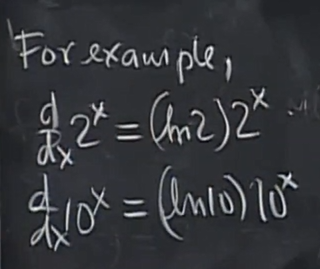 For example,
d/dx 2^x = (ln2) 2^x
d/dx 10^x = (ln10) 10^x